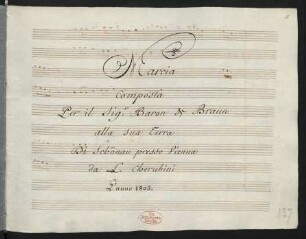 Marcia
Composta
Per il Sig.r Baron de Braun
alla sua Terra
Di Schönau presso Vienna
da L. Cherubini
L'anno 1805.
137